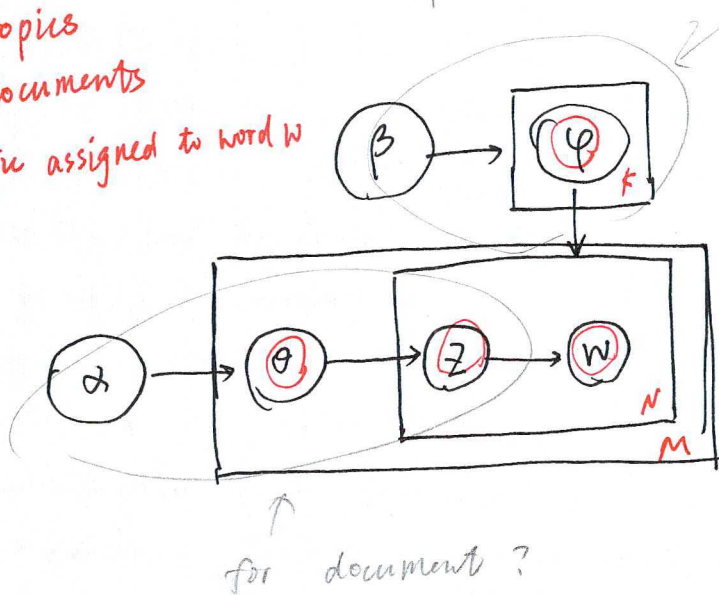 opics
ocuments
ic assigned to word w
β
φ
K
α
θ
z
w
N
M
for document ?